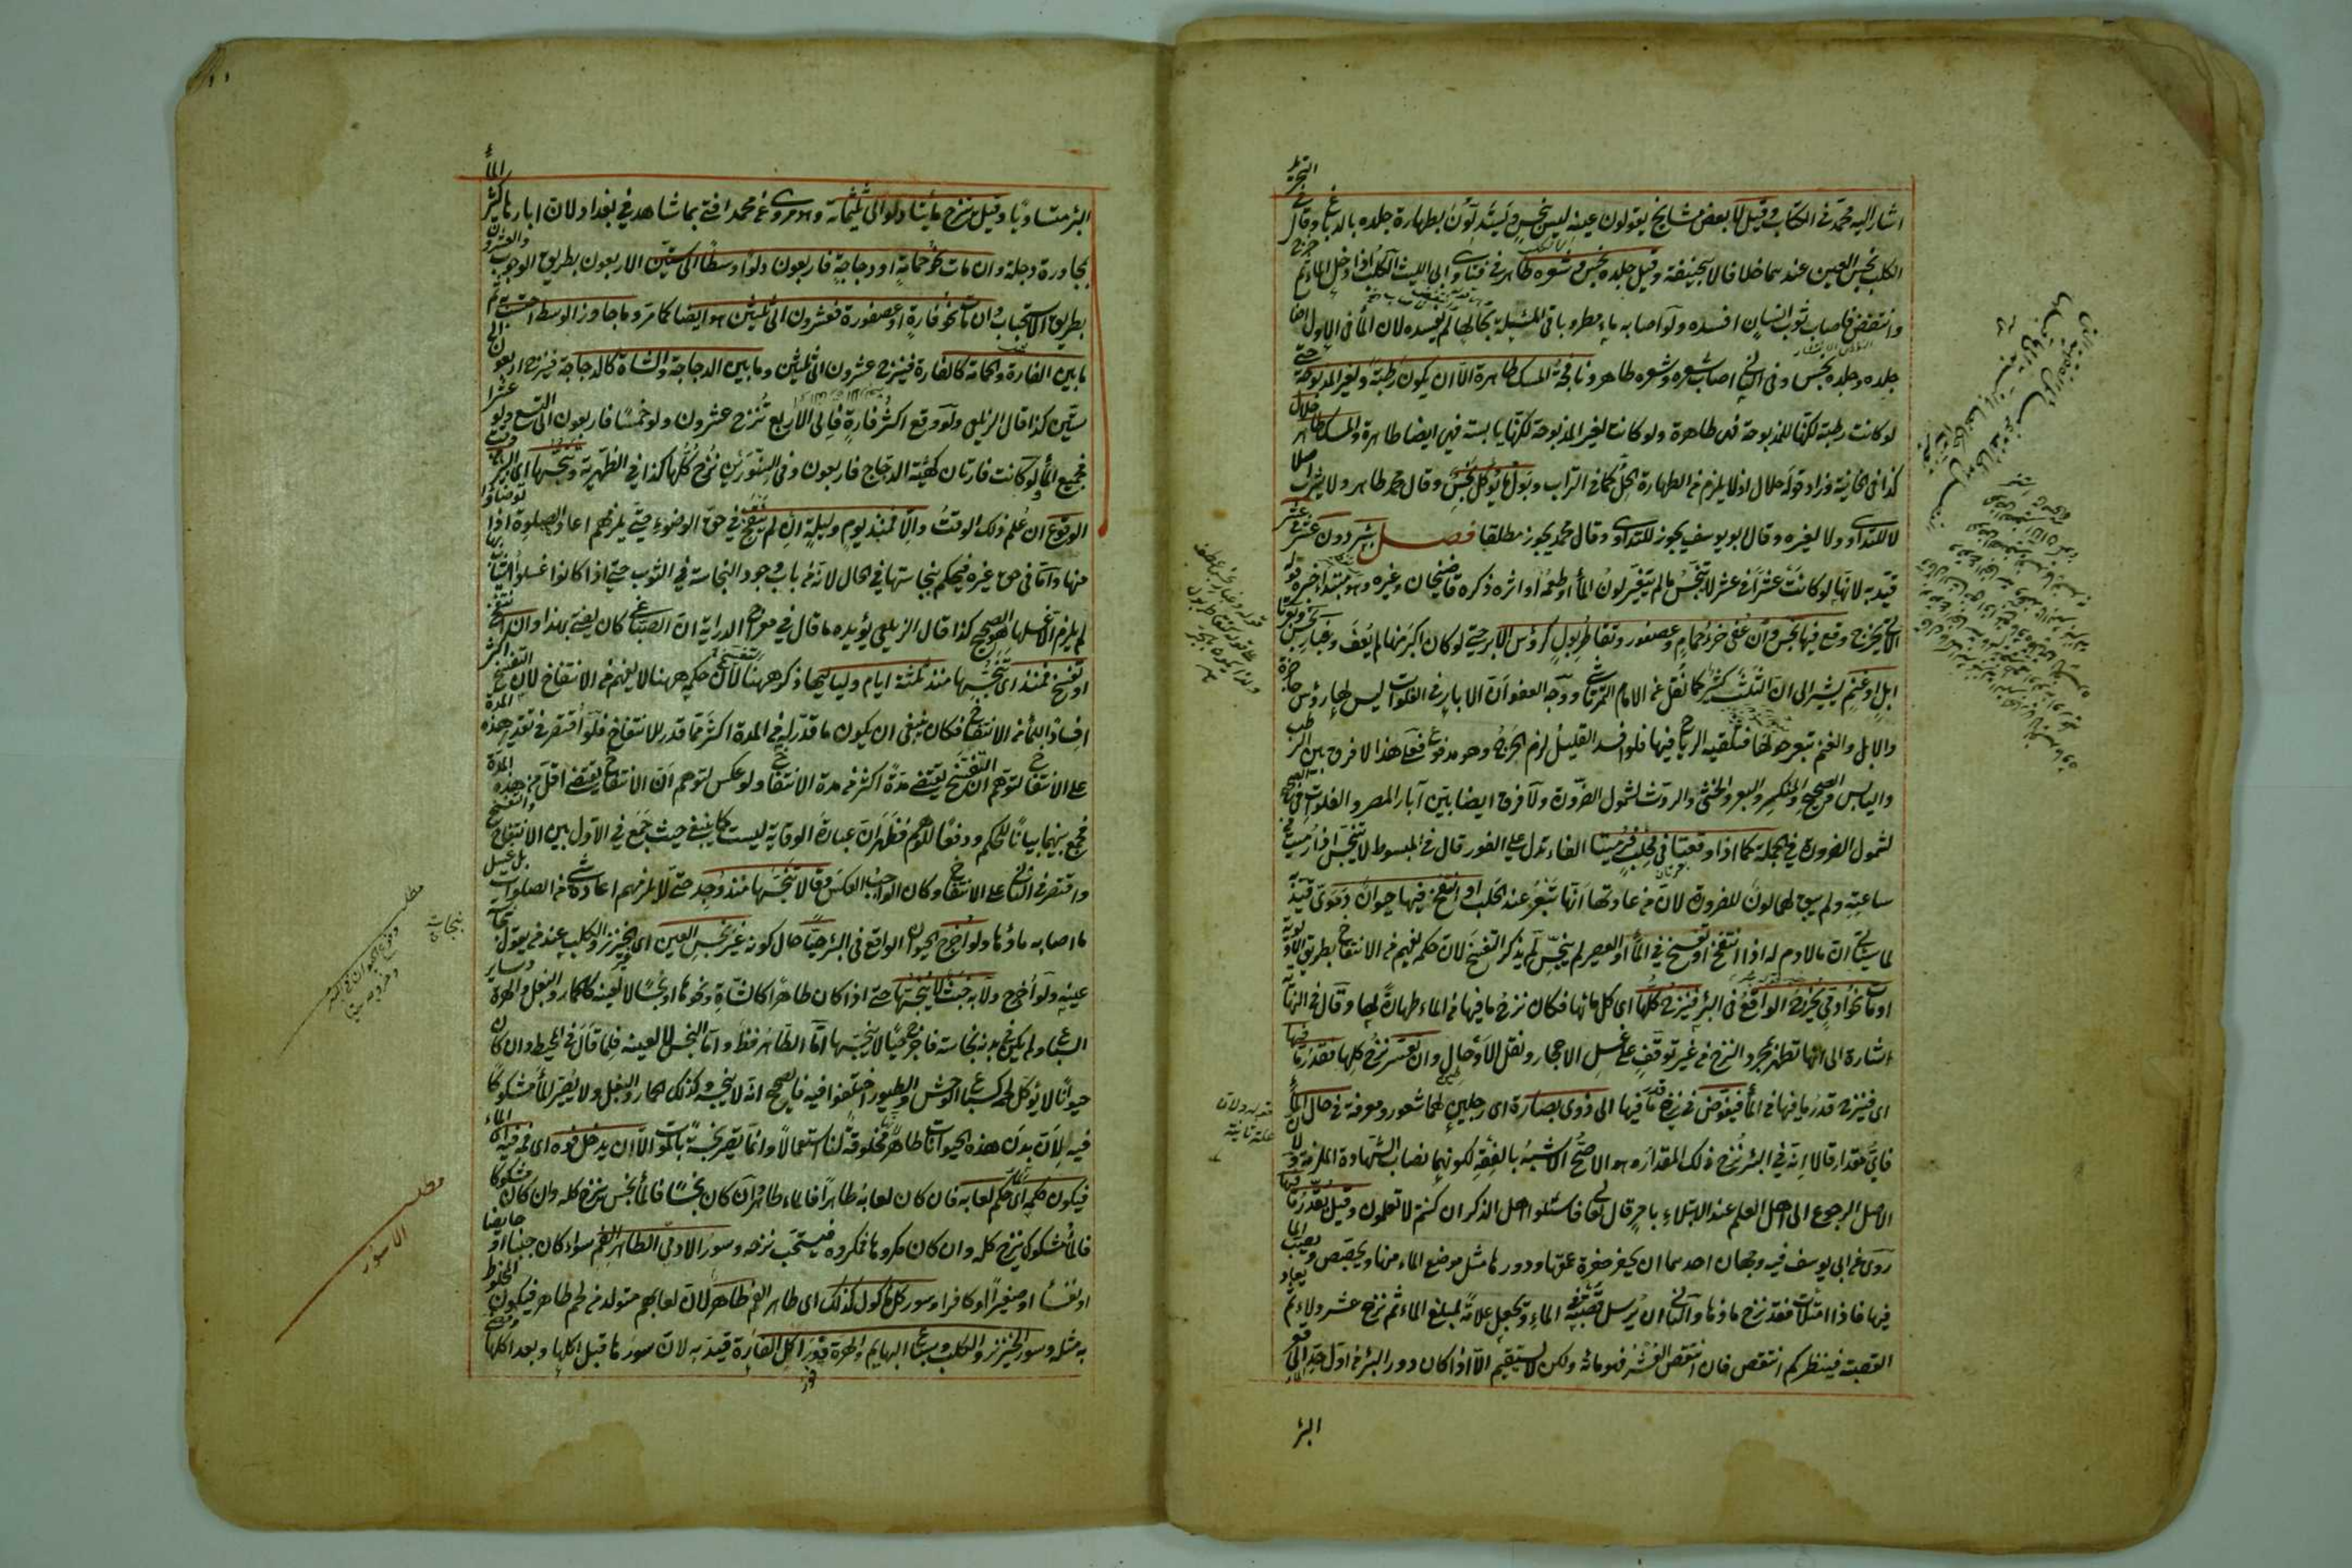 اشار اليه محمد في الكتاب وقيل لا بعض مشايخ يقولون عينه ليس بنجس ويستدلون بطهارة جلده بالدباغ وقال في التجريد
الكلب نجس العين عندهما خلافا لابي حنيفة وقيل جلده نجس وشعره طاهر في فتاوى ابي الليث الكلب اذا دخل الماء ثم خرج
وانتفض فاصاب ثوب انسان افسده ولو اصابه ماء مطر وباقي المسئلة بحالها لم يفسده لان الماء في الاول اصاب
جلده وجلده نجس وفي الثاني اصاب شعره وشعره طاهر ونافجة المسك طاهرة الا ان يكون رطبة ولغير المذبوحة حتى
لو كانت رطبة لكنها للمذبوحة فهي طاهرة ولو كانت لغير المذبوحة لكنها يابسة فهي ايضا طاهرة والمسك طاهر حلال
كذا في الخانية وزاد قوله حلال اذ لا يلزم من الطهارة الحل كما في التراب وبول ما يؤكل نجس وقال محمد طاهر ولا يشرب اصلا
لا للتداوي ولا لغيره وقال ابو يوسف يجوز للتداوي وقال محمد يجوز مطلقا فصل بئر دون عشر في عشر
قيد به لانها لو كانت عشرا في عشر لا تنجس ما لم يتغير لون الماء او طعمه او اثره ذكره قاضيخان وغيره وهو مبتدأ خبره قوله
الآتي ينزح وقع فيها نجس وان عفي خرء حمام وعصفور وتقاطر بول كرؤس الابر حتى لو كان اكبر منها لم يعف وغبار نجس وبعرتا
ابل او غنم يشير الى ان الثلث كثير كما نقل عن الامام التمرتاشي ووجه العفو ان الابار في الفلوات ليس لها رؤس حاجزة
والابل والغنم تبعر حولها فتلقيه الرياح فيها فلو افسد القليل لزم الحرج وهو مدفوع فعلى هذا لا فرق بين الرطب
واليابس والصحيح والمنكسر والبعر والخثي والروث لشمول الضرورة ولا فرق ايضا بين آبار المصر والفلوات في الصحيح
لشمول الضرورة في الجملة كما اذا وقعتا في محلب فرميتا الفاء تدل على الفور قال في المبسوط لا تنجس اذا رميت من
ساعته ولم يبق لها لون للضرورة لان من عادتها انها تبعر عند الحلب او انتفخ فيها حيوان دموي قيد به
لما سيأتي ان ما لا دم له اذا انتفخ او تفسخ في الماء او العصير لم ينجس لم يذكر التفسخ لان حكمه يفهم من الانتفاخ بطريق الاولوية
او مات نحو آدمي يخرج الواقع في البئر فينزح كلها اي كل مائها فكان نزح ما فيها من الماء طهارة لها وقال في النهاية
اشارة الى انها تطهر بمجرد النزح من غير توقف على غسل الاحجار ونقل الاوحال وان تعسر نزح كلها فقدر ما فيها
اي فينزح قدر ما فيها من الماء فيفوض في نزح قدر ما فيها الى ذوي بصارة اي رجلين لهما شعور ومعرفة في حال الماء
فاي مقدار قالا انه في البئر نزح ذلك المقدار هو الاصح الاشبه بالفقه لكونهما نصاب الشهادة الملزمة ولان
الاصل الرجوع الى اهل العلم عند الابتلاء بامر قال تعالى فاسئلوا اهل الذكر ان كنتم لا تعلمون وقيل يقدر ما فيها
روي عن ابي يوسف فيه وجهان احدهما ان يحفر حفرة عمقها ودورها مثل موضع الماء منها ويجصص ويصب الماء
فيها فاذا امتلأت فقد نزح ماؤها والثاني ان يرسل قصبة في الماء ويجعل علامة لمبلغ الماء ثم نزح عشر دلاء ثم يعاد
القصبة فينظر كم انتقص فان انتقص العشر فهو مائة ولكن لا يستقيم الا اذا كان دور البئر من اول حد الماء الى قعر
البئر
البئر متساويا وقيل ينزح مأيتا دلو الى ثلثمائة وهو مروي عن محمد افتى بما شاهد في بغداد لان ابارها كثير الماء
بمجاورة دجلة وان مات نحو حمامة او دجاجة فاربعون دلوا وسطا الى ستين الاربعون بطريق الوجوب والعشرون
بطريق الاستحباب وان مات نحو فارة او عصفورة فعشرون الى ثلثين هو ايضا كما مر وما جاوز الوسط احتسب به ثم
ما بين الفارة والحمامة كالفارة فينزح عشرون الى ثلثين وما بين الدجاجة والشاة كالدجاجة فينزح اربعون الى
ستين كذا قال الزيلعي ولو وقع اكثر من فارة فالى الاربع تنزح عشرون ولو خمسا فاربعون الى التسع ولو عشرا
فجميع الماء ولو كانت فارتان كهيئة الدجاج فاربعون وفي السنورين نزح كلها كذا في الظهيرية وينجسها اي البئر من وقت
الوقوع ان علم ذلك الوقت والا فمنذ يوم وليلة ان لم ينتفخ في حق الوضوء حتى يلزمهم اعادة الصلوة اذا توضأوا
منها واما في حق غيره فيحكم بنجاستها في الحال لانه من باب وجود النجاسة في الثوب حتى اذا كانوا غسلوا الثياب بمائها
لم يلزم الا غسلها هو الصحيح كذا قال الزيلعي يؤيده ما قال في معراج الدراية ان الصباغي كان يفتي بهذا وان انتفخ
او تفسخ فمنذ اي تنجسها منذ ثلثة ايام ولياليها ذكر ههنا لان حكمه ههنا لا يفهم من الانتفاخ لان التفسخ اكثر
افسادا للماء من الانتفاخ فكان ينبغي ان يكون ما قدر له في المدة اكثر مما قدر للانتفاخ فلو اقتصر في تقدير هذه المدة
على الانتفاخ لتوهم ان التفسخ يقتضي مدة اكثر من مدة الانتفاخ ولو عكس لتوهم ان الانتفاخ يقتضي اقل من هذه المدة
فجمع بينهما بيانا للحكم ودفعا للوهم فظهر ان عبارة الوقاية ليست كما ينبغي حيث جمع في الاول بين الانتفاخ والتفسخ
واقتصر في الثاني على الانتفاخ وكان الواجب العكس وقالا تنجسها منذ وجد حتى لا يلزمهم اعادة شيء من الصلوات بل غسل
ما اصابه ماؤها ولو اخرج الحيوان الواقع في البئر حيا حال كونه غير نجس العين اي الخنزير والكلب عند من يقول بنجاسة
عينه ولو اخرج ولا به خبث لا ينجسها حتى اذا كان طاهرا كالشاة ونحوها او نجسا لا لعينه كالحمار والبغل والهرة وسائر
السباع ولم يكن على بدنه نجاسة فاخرج حيا لا ينجسها اما الطاهر فظاهر واما النجس لا لعينه فلما قال في المحيط وان كان
حيوانا لا يؤكل لحمه كسباع الوحش والطيور اختلفوا فيه فالصحيح انه لا ينجسه وكذلك الحمار والبغل ولا يصير الماء مشكوكا
فيه لان بدن هذه الحيوانات طاهر مخلوقة لنا استعمالا وانما يصير نجسة بالموت الا ان يدخل فوه اي فمه فيه اي الماء
فيكون حكمه اي الماء حكم لعابه فان كان لعابه طاهرا فالماء طاهر وان كان نجسا فالماء نجس ينزح كله وان كان مشكوكا
فالماء مشكوك ينزح كله وان كان مكروها فمكروه فيستحب نزحه وسؤر الآدمي الطاهر الفم سواء كان جنبا او حايضا
او نفساء او صغيرا او كافرا وسؤر كل مأكول كذلك اي طاهر الفم طاهر لان لعابهم متولد من لحم طاهر فيكون المخلوط
به مثله وسؤر الخنزير والكلب وسباع البهايم والهرة فور اكل الفارة قيد به لان سؤرها قبل اكلها وبعد اكلها
مطلب
وقوع الحيوان في البئر
مطلب
الاسؤر